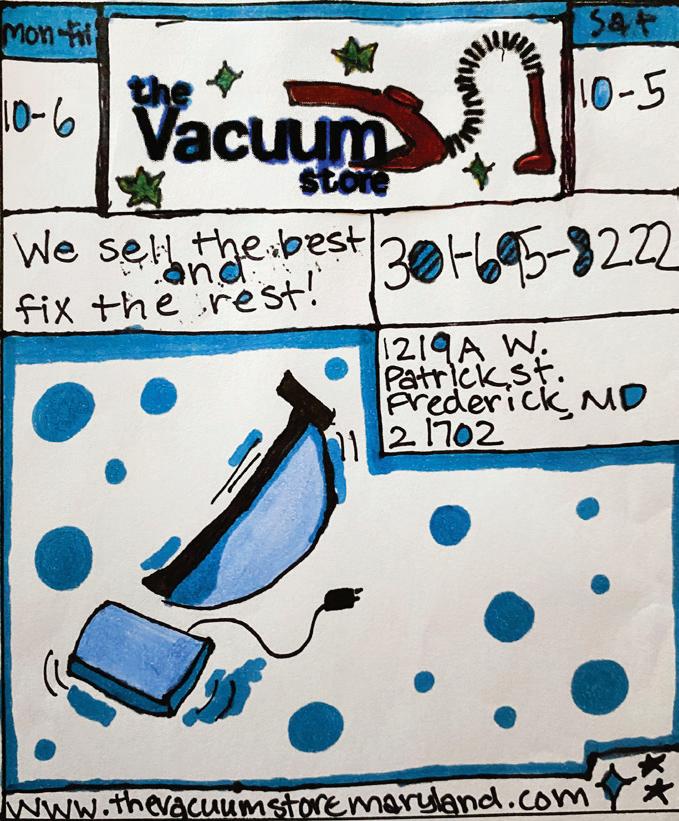 Mon-Fri
10-6
the
Vacuum
store
Sat
10-5
We sell the best
and
fix the rest!
301-695-8222
1219A W.
Patrick St.
Frederick, MD
21702
www.thevacuumstoremaryland.com